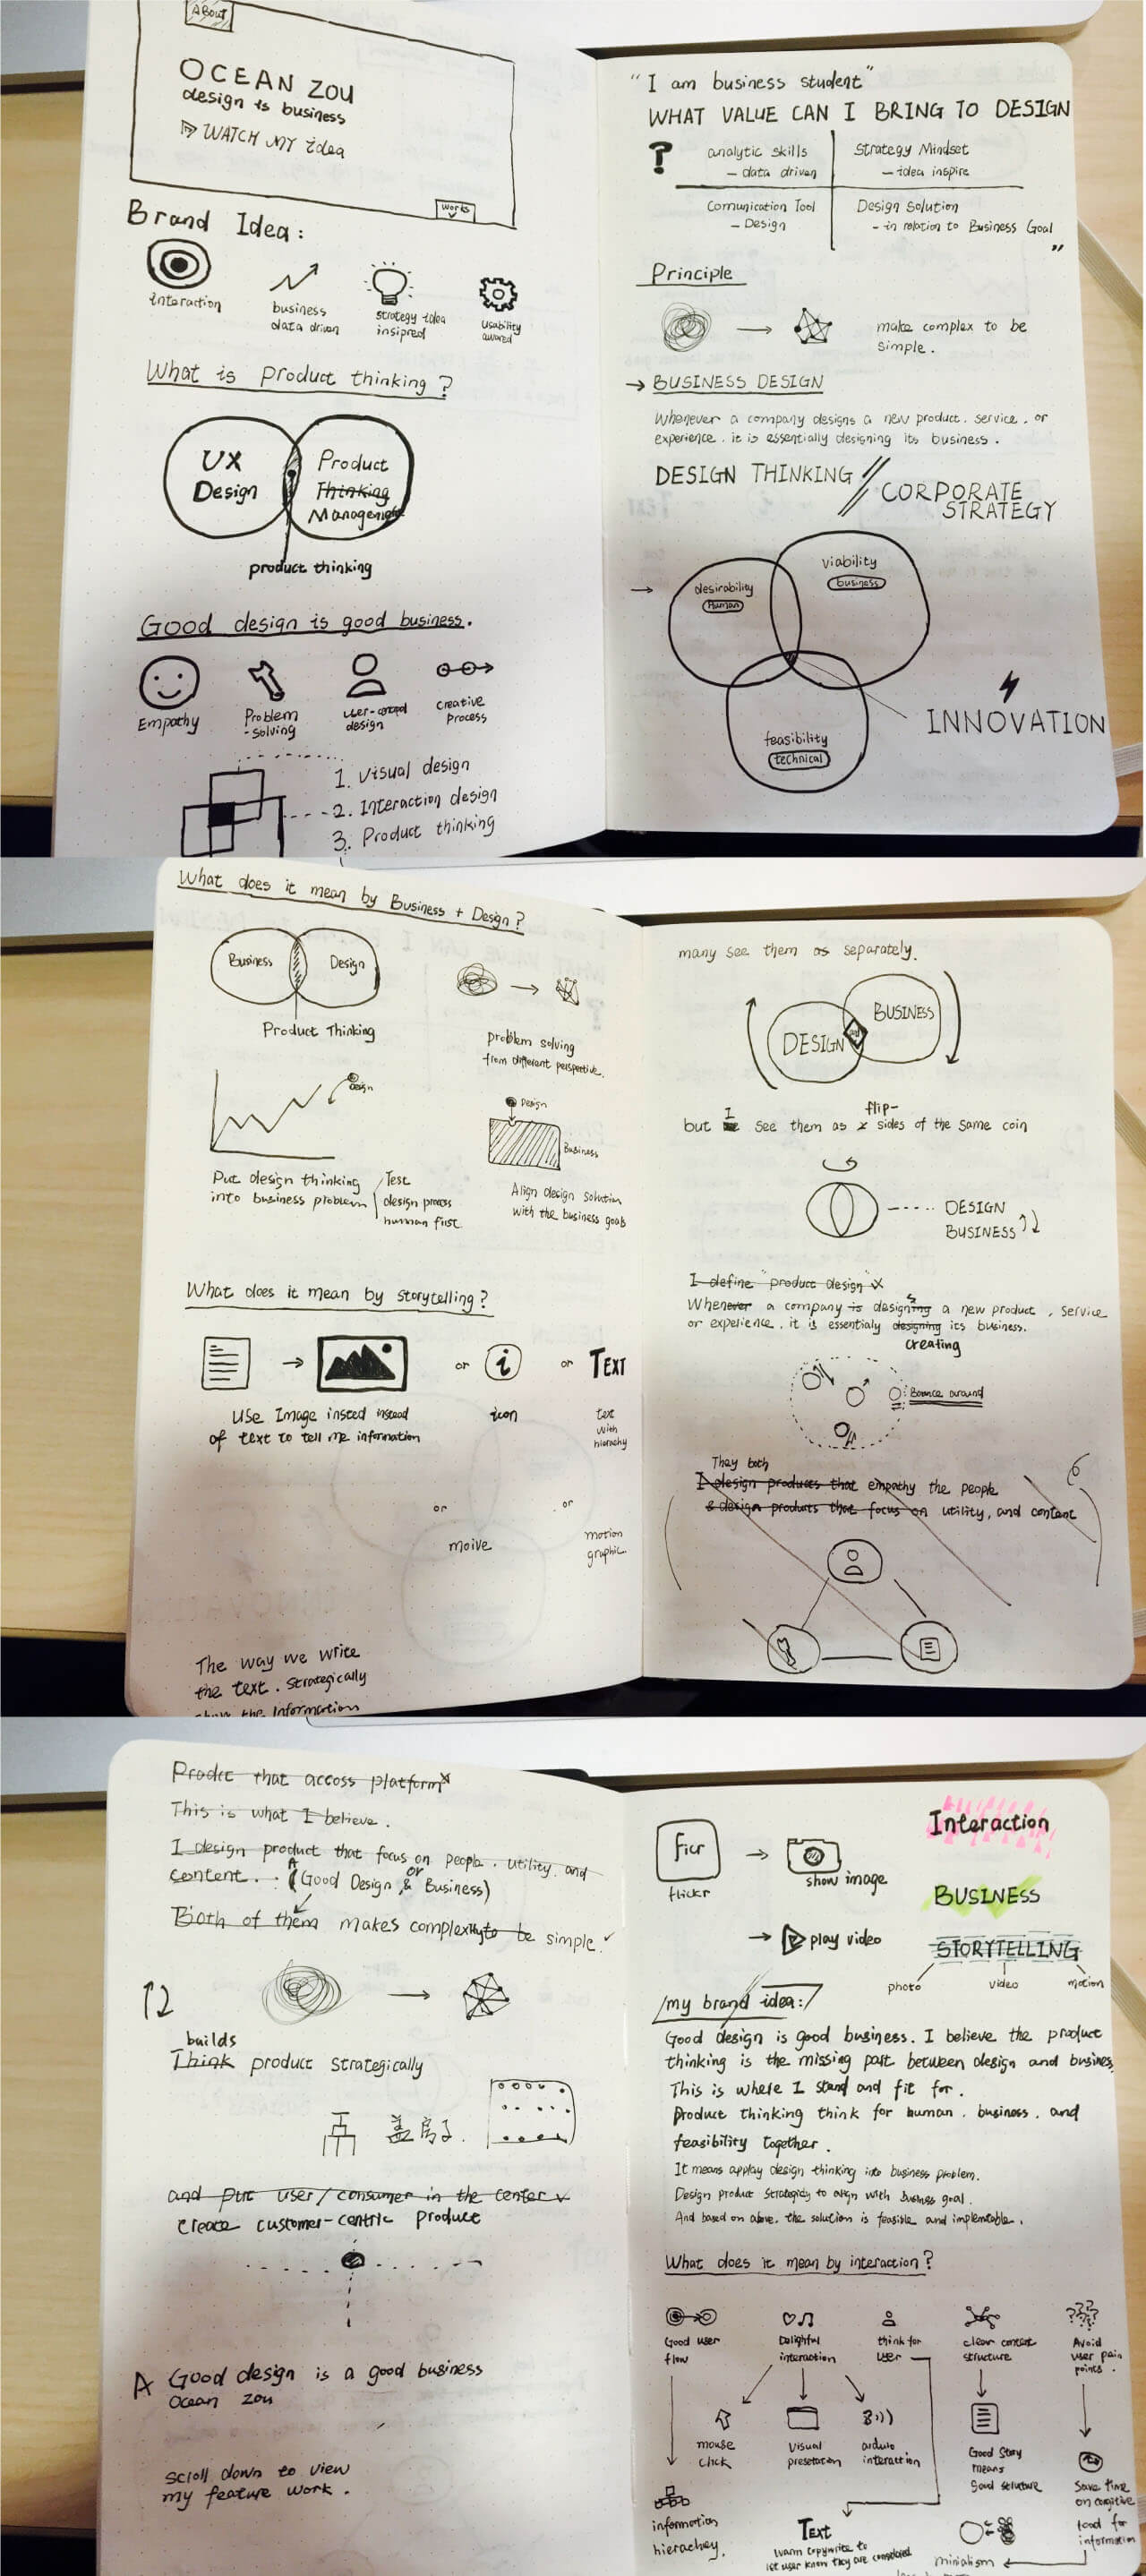 ABOUT
OCEAN ZOU
design is business
WATCH MY idea
Works
Brand Idea:
Interaction
business
data driven
strategy idea
insipred
usability
What is product thinking?
UX
Design
Product
Thinking
Management
product thinking
Good design is good business.
Empathy
Problem
-solving
design
creative
Process
1. Visual design
2. Interaction design
3. Product thinking
"I am business student"
WHAT VALUE CAN I BRING TO DESIGN
?
analytic skills
- data driven
Strategy Mindset
- idea inspire
Comunication Tool
- Design
Design Solution
- in relation to Business Goal
"
Principle
make complex to be
simple.
→ BUSINESS DESIGN
Whenever a company designs a new product, service, or
experience, it is essentially designing its business.
DESIGN THINKING // CORPORATE
STRATEGY
desirability
Human
viability
business
feasibility
technical
INNOVATION
What does it mean by Business + Design?
Business
Design
Product Thinking
problem solving
from different perspective.
Design
Put design thinking
into business problem
Test
design process
human first
Design
Business
Align design solution
with the business goals
What does it mean by storytelling?
Use Image insted instead
of text to tell me information
or
i
icon
or
TEXT
text
with
hierachy
or
moive
or
motion
graphic.
The way we write
the text. strategically
show the information
many see them as separately.
DESIGN
BUSINESS
but I see them as flip-sides of the same coin
DESIGN
BUSINESS
I define "product design" x
Whenever a company is designing a new product, service
or experience, it is essentialy designing its business.
creating
Bounce around
They both
I design products that empathy the people
& design products that focus on utility, and content
Prodct that access platform x
This is what I believe.
I design product that focus on people, utility, and
content.. (A Good Design, or & Business)
Both of them makes complexity to be simple.
builds
Think product strategically
盖房子.
and put user/consumer in the center
create customer-centric product
A Good design is a good business
Ocean Zou
scroll down to view
my feature work.
flickr
show image
play video
Interaction
BUSINESS
STORYTELLING
photo
video
motion
/my brand idea:/
Good design is good business. I believe the product
thinking is the missing part between design and busines.
This is where I stand and fit for.
Product thinking think for human, business, and
feasibility together.
It means applay design thinking into business problem.
Design product strategicly to align with business goal.
And based on above, the solution is feasible and implemtable.
What does it mean by interaction?
Good user
flow
Delightful
interaction
think for
user
clear content
structure
Avoid
user pain
points.
mouse
click
Visual
presetation
arduio
interaction
Good Story
means
good structure
Save time
on cognitive
load for
information
information
hierachey.
TEXT
warm copywrite to
let user know they are considered
minialism